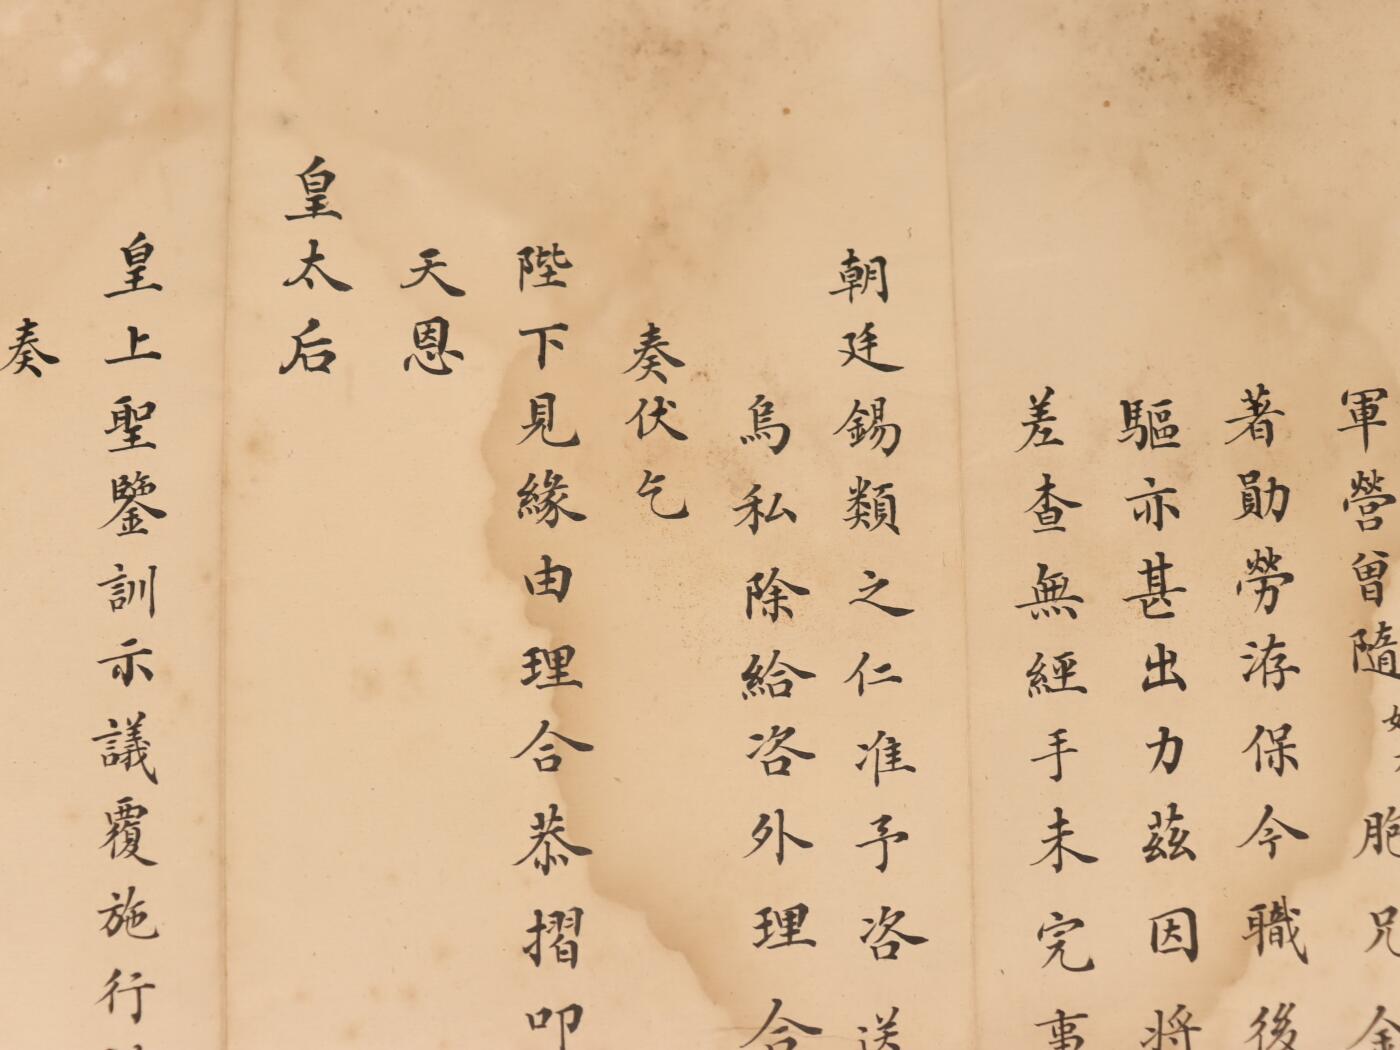 軍營曾隨胞兄金
著勛勞洊保今職後
驅亦甚出力茲因將
差查無經手未完事
朝廷錫類之仁准予咨送
烏私除給咨外理合
奏伏乞
陛下見緣由理合恭摺叩
天恩
皇太后
皇上聖鑒訓示議覆施行
奏